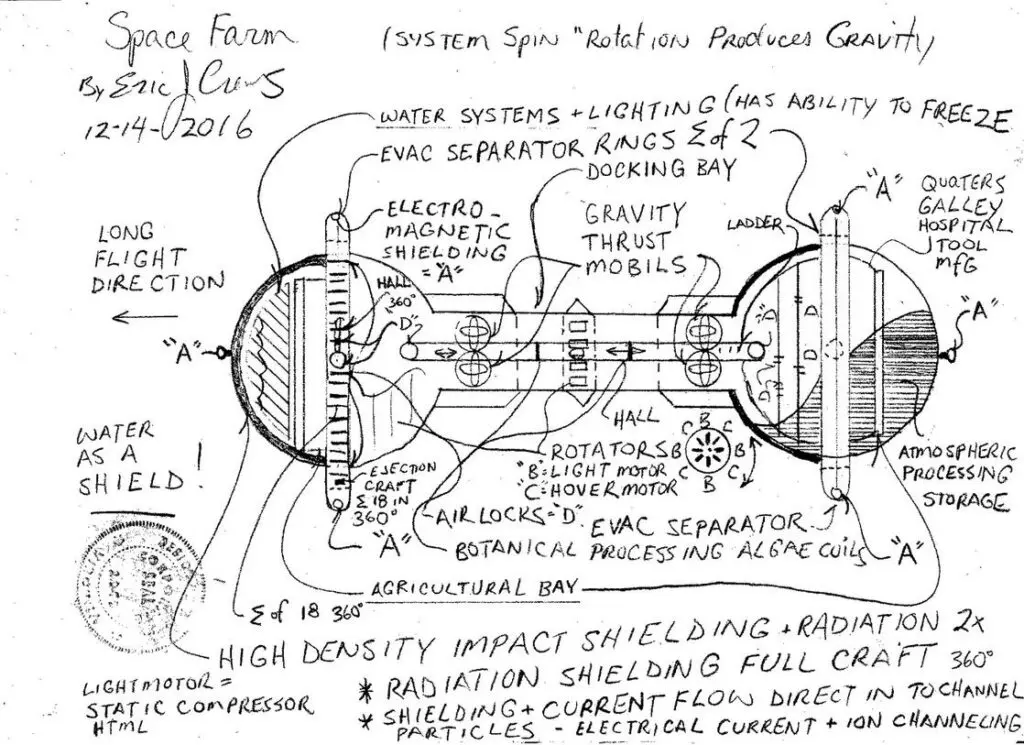 Space Farm
(SYSTEM SPIN "ROTATION PRODUCES GRAVITY
By Eric J
12-14-2016
WATER SYSTEMS + LIGHTING (HAS ABILITY TO FREEZE
EVAC SEPARATOR RINGS Σ of 2
DOCKING BAY
"A"
QUATERS
GALLEY
HOSPITAL
TOOL
MFG
ELECTRO-
MAGNETIC
SHIELDING
="A"
GRAVITY
THRUST
MOBILS
LADDER
LONG
FLIGHT
DIRECTION
HALL
360°
"D"
"A"
"A"
D
D
"D"
"D"
HALL
WATER
AS A
SHIELD!
EJECTION
CRAFT
Σ 18 IN
360°
ROTATORS
"B"=LIGHT MOTOR
"C"=HOVER MOTOR
B
C
C
B
B
C
C
B
ATMOSPHERIC
PROCESSING
STORAGE
AIR LOCKS="D"
EVAC SEPARATOR
"A"
"A"
BOTANICAL PROCESSING ALGAE COILS
AGRICULTURAL BAY
Σ of 18 360°
HIGH DENSITY IMPACT SHIELDING + RADIATION 2x
* RADIATION SHIELDING FULL CRAFT 360°
* SHIELDING + CURRENT FLOW DIRECT IN TO CHANNEL
* PARTICLES - ELECTRICAL CURRENT + ION CHANNELING
LIGHTMOTOR =
STATIC COMPRESSOR
HTML
SEAL